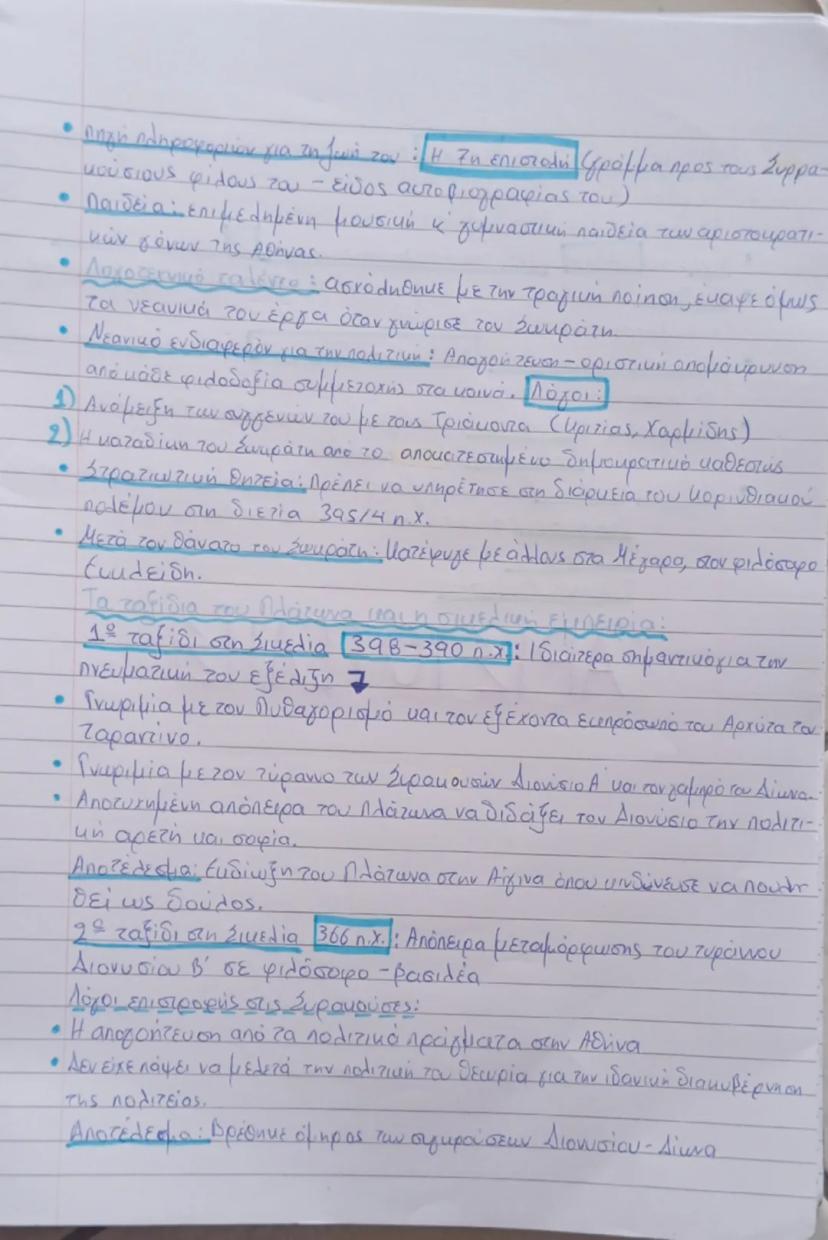 • Πηγή πληροφοριών για τη ζωή του: Η 7η επιστολή (γράμμα προς τους Συρρα-
κούσιους φίλους του - είδος αυτοβιογραφίας του)
• Παιδεία: επιμελημένη μουσική κ' γυμναστική παιδεία των αριστοκρατι-
κών γόνων της Αθήνας.
• Λογοτεχνικό ταλέντο: ασχολήθηκε με την τραγική ποίηση, έκαψε όμως
τα νεανικά του έργα όταν γνώρισε τον Σωκράτη.
• Νεανικό ενδιαφέρον για την πολιτική: Απογοήτευση - οριστική απομάκρυνση
από κάθε φιλοδοξία συμμετοχής στα κοινά. Λόγοι:
1) Ανάμειξη των συγγενών του με τους Τριάκοντα (Κριτίας, Χαρμίδης)
2) Η καταδίκη του Σωκράτη από το αποκατεστημένο δημοκρατικό καθεστώς
• Στρατιωτική θητεία: Πρέπει να υπηρέτησε στη διάρκεια του Κορινθιακού
πολέμου στη διετία 395/4 π.Χ.
• Μετά τον θάνατο του Σωκράτη: Κατέφυγε με άλλους στα Μέγαρα, στον φιλόσοφο
Ευκλείδη.
Τα ταξίδια του Πλάτωνα και η σικελική εμπειρία:
1º ταξίδι στη Σικελία 398-390 π.Χ: Ιδιαίτερα σημαντικό για την
πνευματική του εξέλιξη
• Γνωριμία με τον Πυθαγορισμό και τον εξέχοντα εκπρόσωπό του Αρχύτα τον
Ταραντίνο.
• Γνωριμία με τον τύραννο των Συρακουσών Διονύσιο Α' και τον γαμπρό του Δίωνα.
• Αποτυχημένη απόπειρα του Πλάτωνα να διδάξει τον Διονύσιο την πολιτι-
κή αρετή και σοφία.
Αποτέλεσμα: Εκδίωξη του Πλάτωνα στην Αίγινα όπου κινδύνευσε να πουλη
θεί ως δούλος.
2º ταξίδι στη Σικελία 366 π.Χ.: Απόπειρα μεταμόρφωσης του τυράννου
Διονυσίου Β' σε φιλόσοφο - βασιλέα
Λόγοι επιστροφής στις Συρακούσες:
• Η απογοήτευση από τα πολιτικά πράγματα στην Αθήνα
• Δεν είχε πάψει να μελετά την πολιτική του θεωρία για την ιδανική διακυβέρνηση
της πολιτείας.
Αποτέλεσμα: Βρέθηκε όμηρος των συγκρούσεων Διονυσίου - Δίωνα